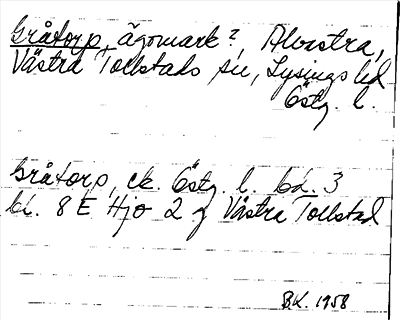 Gråtorp, ägomark?, Alvastra,
Västra Tollstads sn, Lysings hd
Östg. l.
Gråtorp, ek. Östg. l. bd. 3
bl. 8 E Hjo 2 g Västra Tollstad
BK. 1958